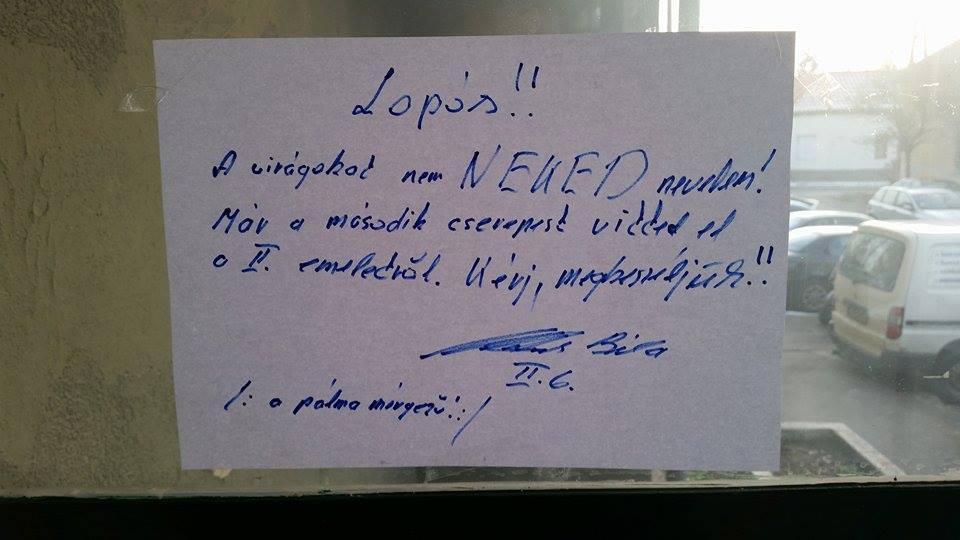 Lopós!!
A virágokat nem NEKED nevelem!
Már a második cserepest vitted el
a II. emeletről. Kérj, megbeszéljük!!
Béla
II. 6.
/: a pálma mérgező! :/